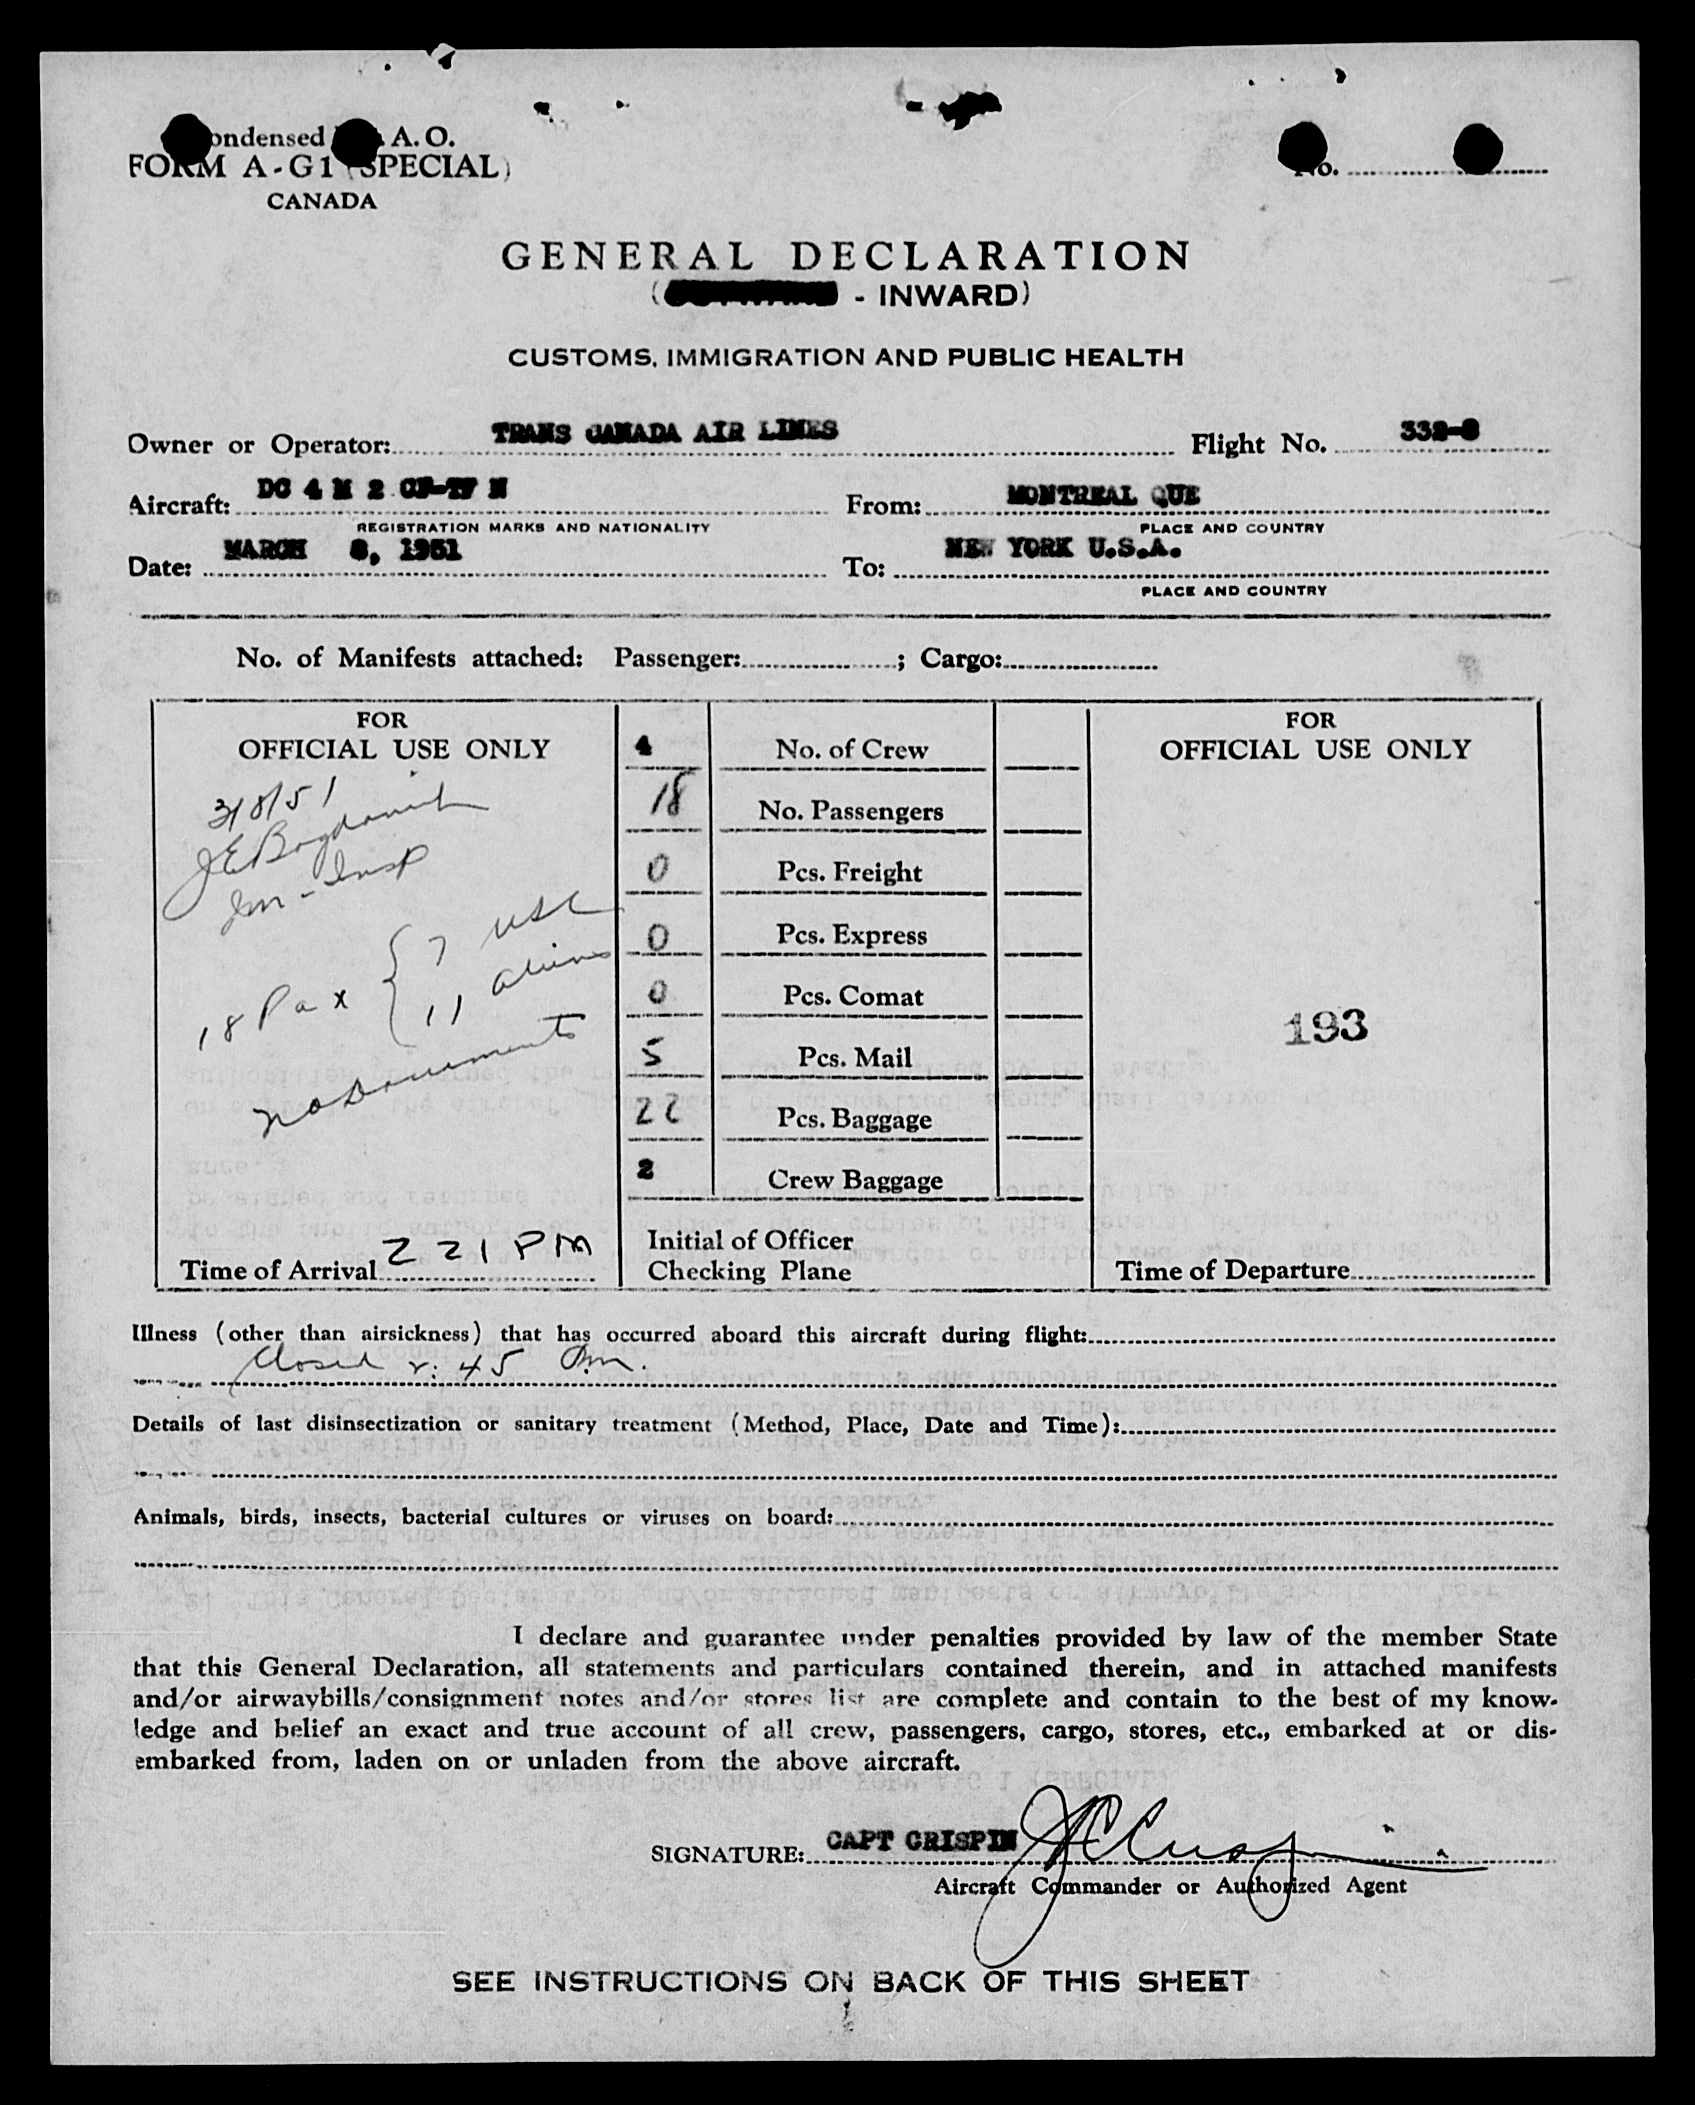 ondensed A. O.
FORM A-G1 (SPECIAL)
CANADA
No.
GENERAL DECLARATION
( - INWARD)
CUSTOMS, IMMIGRATION AND PUBLIC HEALTH
Owner or Operator: TRANS CANADA AIR LINES Flight No. 332-8
Aircraft: DC 4 M 2 CF-TF N From: MONTREAL QUE
REGISTRATION MARKS AND NATIONALITY PLACE AND COUNTRY
Date: MARCH 8, 1951 To: NEW YORK U.S.A.
PLACE AND COUNTRY
No. of Manifests attached: Passenger: ; Cargo:
FOR
OFFICIAL USE ONLY
3/8/51
JE
Im-Insp
18 Pax { 7 USC
11 aliens
no Documents
Time of Arrival 2 21 PM
4 No. of Crew
18 No. Passengers
0 Pcs. Freight
0 Pcs. Express
0 Pcs. Comat
5 Pcs. Mail
22 Pcs. Baggage
2 Crew Baggage
Initial of Officer
Checking Plane
FOR
OFFICIAL USE ONLY
193
Time of Departure
Illness (other than airsickness) that has occurred aboard this aircraft during flight:
Closed 2:45 Pm.
Details of last disinsectization or sanitary treatment (Method, Place, Date and Time):
Animals, birds, insects, bacterial cultures or viruses on board:
I declare and guarantee under penalties provided by law of the member State
that this General Declaration, all statements and particulars contained therein, and in attached manifests
and/or airwaybills/consignment notes and/or stores list are complete and contain to the best of my know-
ledge and belief an exact and true account of all crew, passengers, cargo, stores, etc., embarked at or dis-
embarked from, laden on or unladen from the above aircraft.
SIGNATURE: CAPT CRISPIN JC Crispin
Aircraft Commander or Authorized Agent
SEE INSTRUCTIONS ON BACK OF THIS SHEET